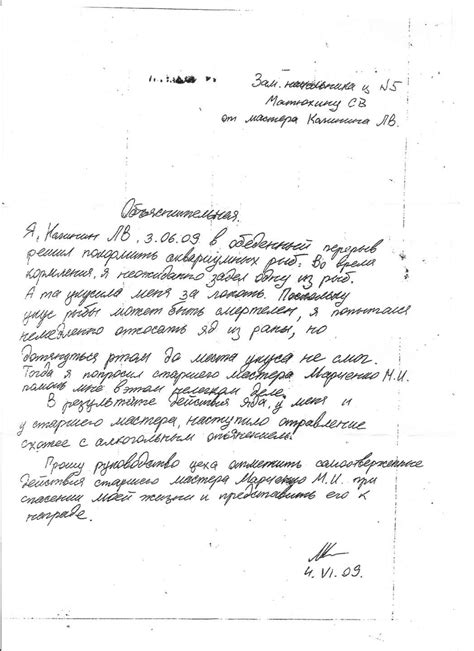 Зам. начальника ц №5
Матюхину СВ
от мастера Калинина ЛВ.
Объяснительная.
Я, Калинин ЛВ. 3.06.09 в обеденный перерыв
решил покормить аквариумных рыб. Во время
кормления, я неожиданно задел одну из рыб.
А та укусила меня за локоть. Поскольку
укус рыбы может быть смертелен, я попытался
немедленно отсосать яд из раны, но
дотянуться ртом до места укуса не смог.
Тогда я попросил старшего мастера Марченко М.И.
помочь мне в этом нелегком деле.
В результате действия яда, у меня и
у старшего мастера, наступило отравление
схожее с алкогольным опьянением.
Прошу руководство цеха отметить самоотверженные
действия старшего мастера Марченко М.И. при
спасении моей жизни и представить его к
награде.
4. VI. 09.